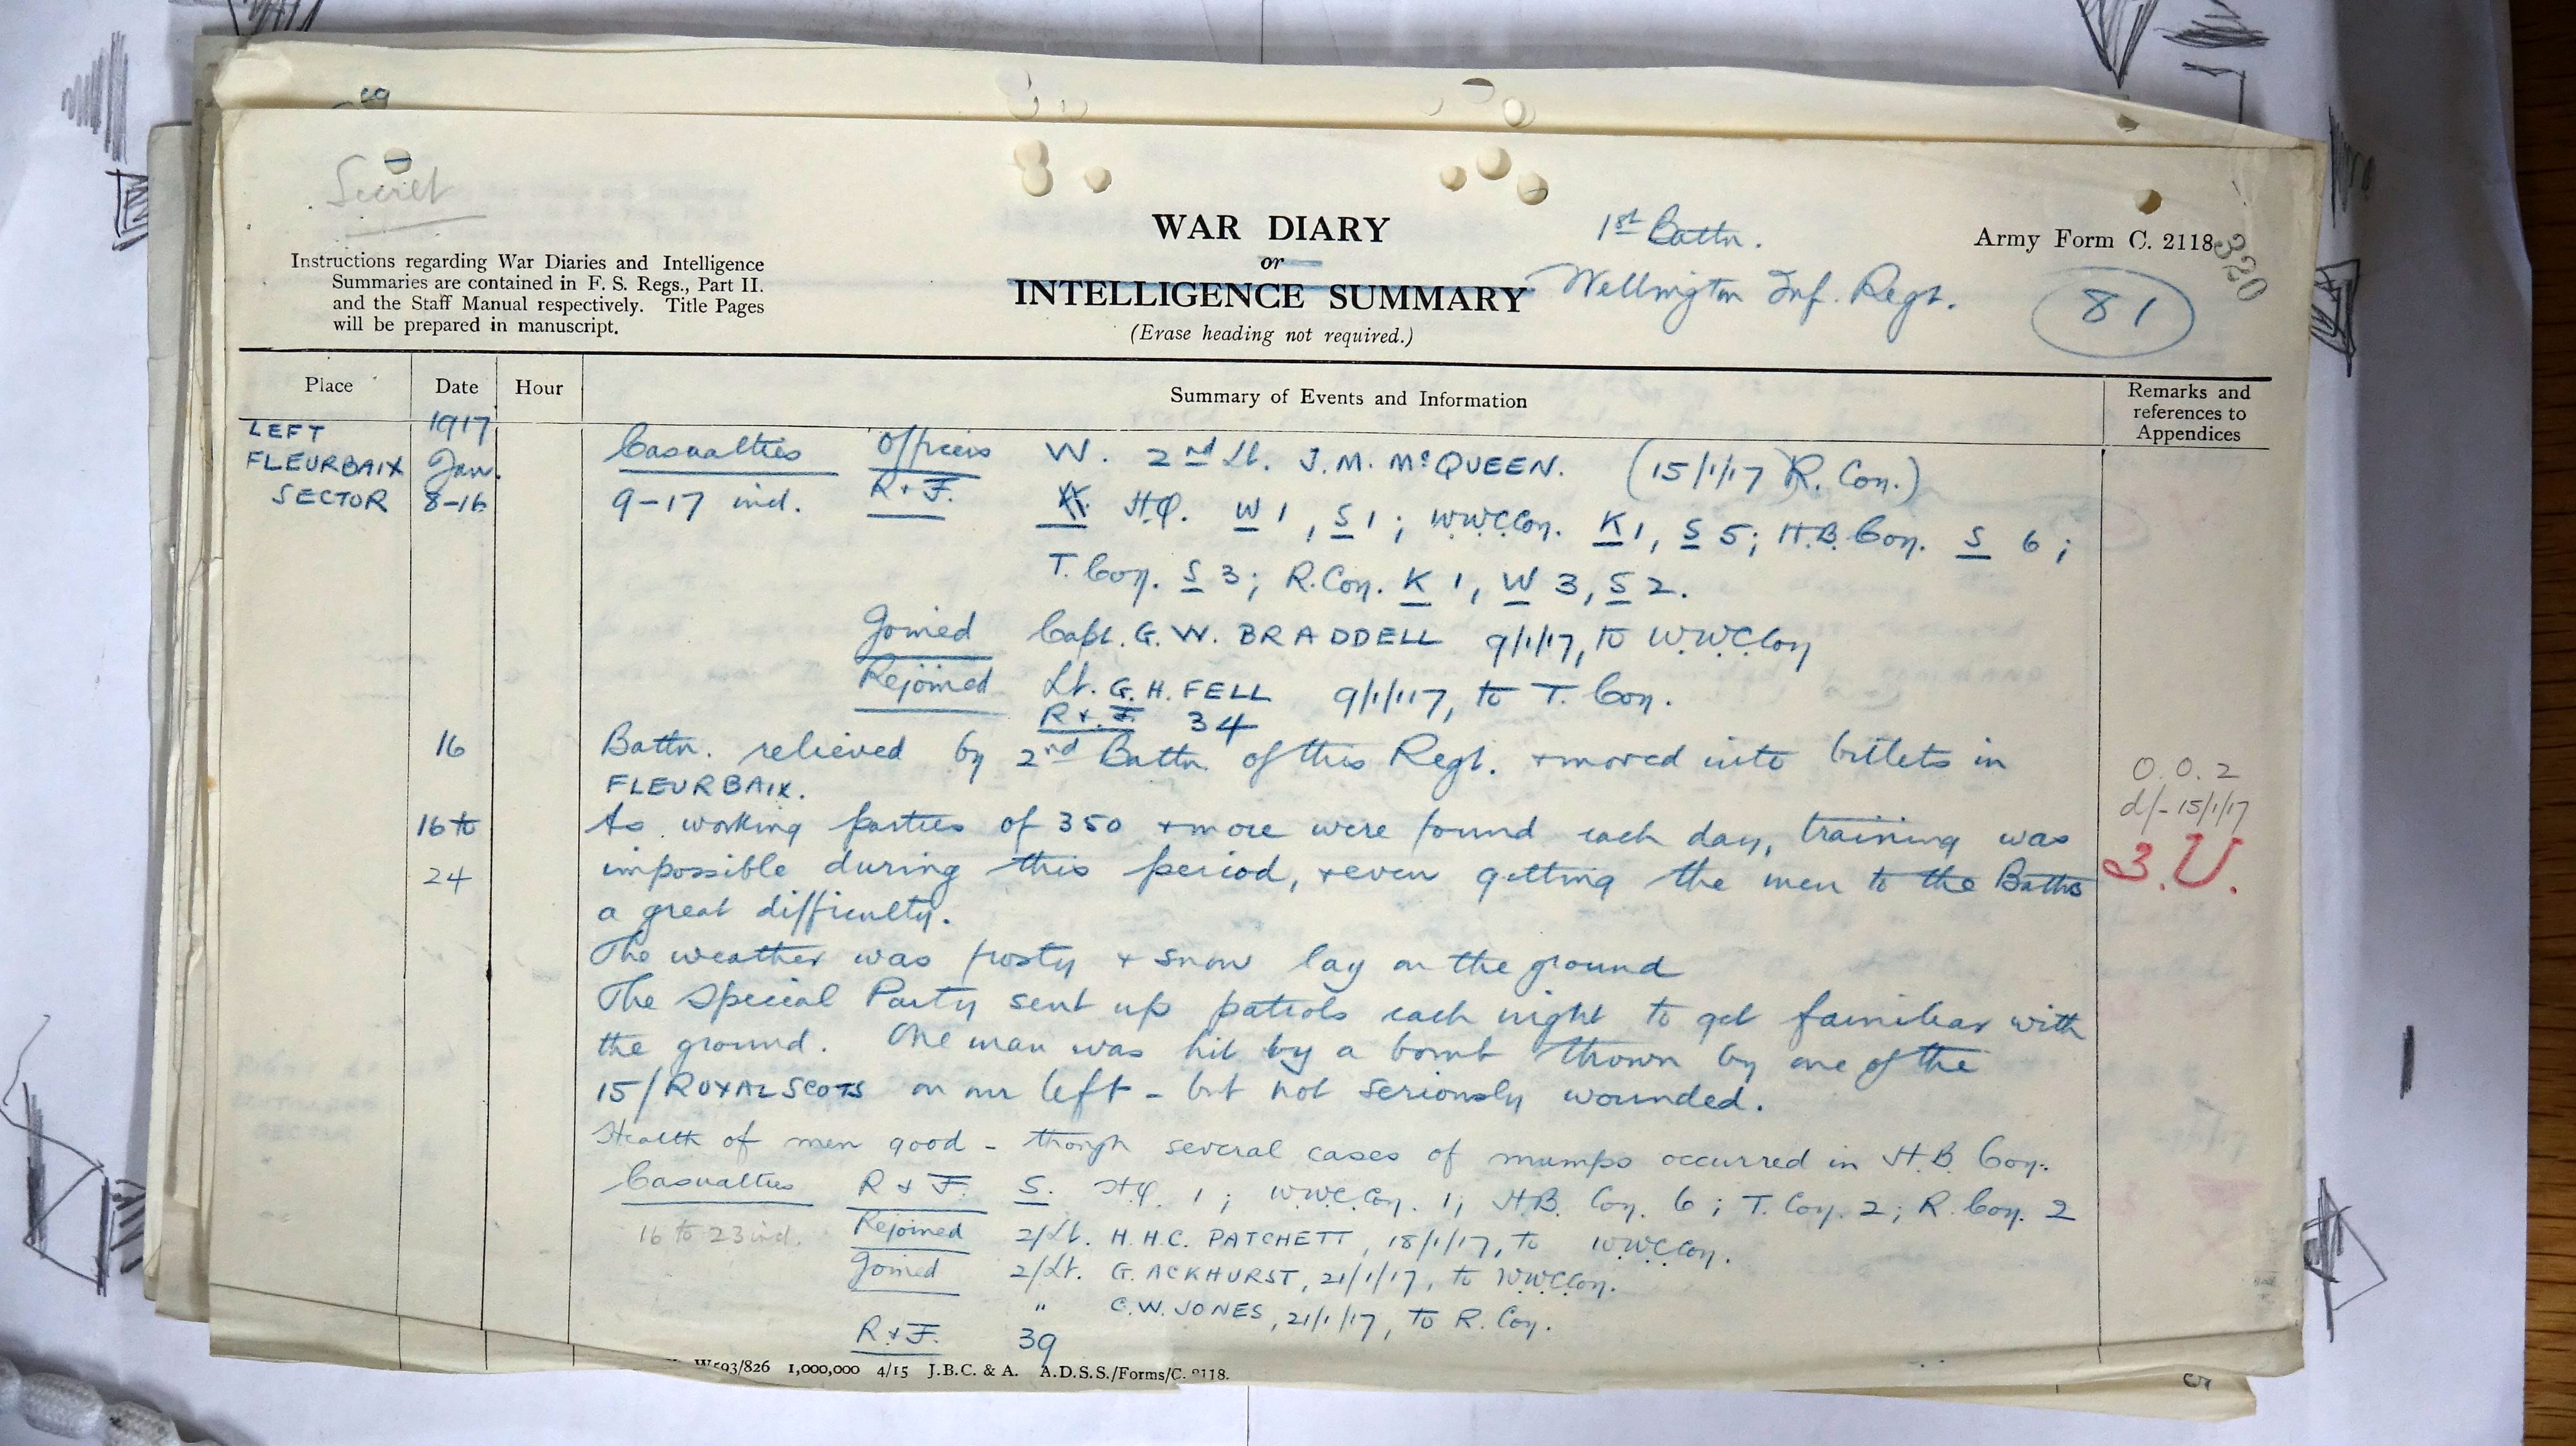 Secret
Instructions regarding War Diaries and Intelligence
Summaries are contained in F. S. Regs., Part II.
and the Staff Manual respectively. Title Pages
will be prepared in manuscript.
WAR DIARY
or
INTELLIGENCE SUMMARY
(Erase heading not required.)
1st Battn.
Wellington Inf. Regt.
Army Form C. 2118
320
81
Place
Date
Hour
Summary of Events and Information
Remarks and
references to
Appendices
LEFT
FLEURBAIX
SECTOR
1917
Jan.
8-16
Casualties Officers W. 2nd Lt. J.M. McQUEEN. (15/1/17 R. Coy.)
9-17 incl. R & F. H.Q. W 1, S 1; W.W.C.Coy. K 1, S 5; H.B. Coy. S 6;
T. Coy. S 3; R. Coy. K 1, W 3, S 2.
Joined Capt. G. W. BRADDELL 9/1/17, to W.W.C.Coy
Rejoined Lt. G. H. FELL 9/1/17, to T. Coy.
R & F. 34
16 Battn. relieved by 2nd Battn. of this Regt. & moved into billets in
FLEURBAIX.
O.O. 2
d/- 15/1/17
16 to As working parties of 350 & more were found each day, training was
3.U.
24 impossible during this period, & even getting the men to the Baths
a great difficulty.
The weather was frosty & snow lay on the ground
The Special Party sent up patrols each night to get familiar with
the ground. One man was hit by a bomb thrown by one of the
15/ROYAL SCOTS on our left - but not seriously wounded.
Health of men good - though several cases of mumps occurred in H.B. Coy.
Casualties R & F. S. H.Q. 1; W.W.C. Coy. 1; H.B. Coy. 6; T. Coy. 2; R. Coy. 2
16 to 23 incl. Rejoined 2/Lt. H.H.C. PATCHETT, 18/1/17, to W.W.C.Coy.
Joined 2/Lt. G. ACKHURST, 21/1/17, to W.W.C.Coy.
" C.W. JONES, 21/1/17, to R. Coy.
R & F. 39
W593/826 1,000,000 4/15 J.B.C. & A. A.D.S.S./Forms/C. 2118.